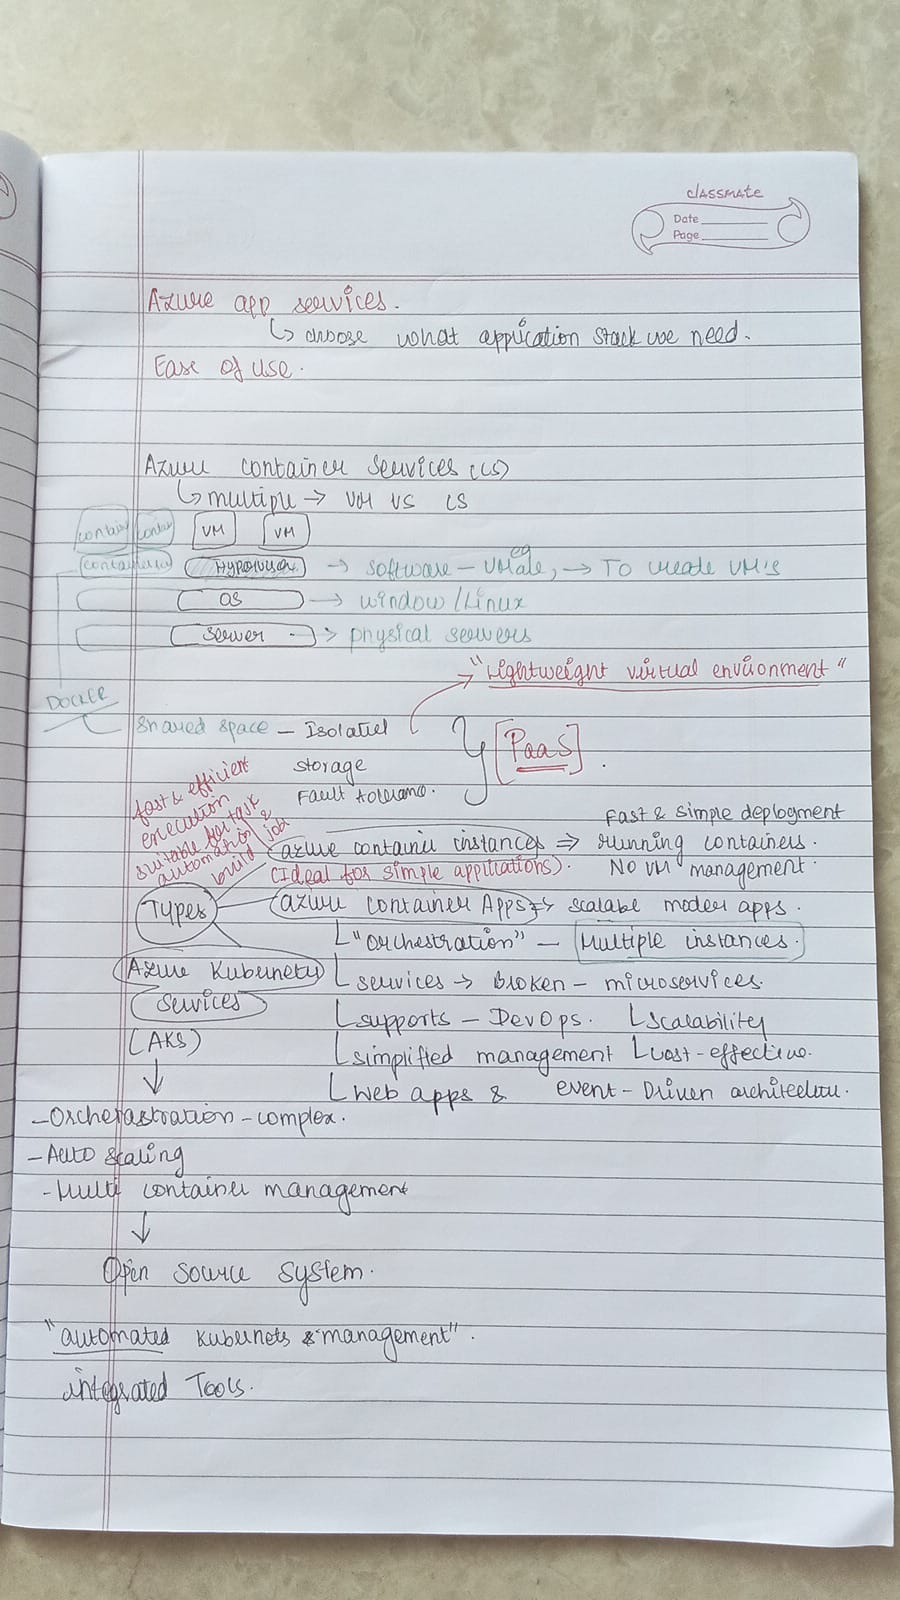 classmate
Date
Page
Azure app services.
↳ choose what application stack we need.
Ease of use.
Azure container services (CS)
↳ multiple → VM VS CS
VM VM
→ software – eg → To create VM's
OS → window / Linux
Server → physical servers
"Lightweight virtual environment"
Docker
Shared space – Isolated
storage
Fault tolerance.
[PaaS]
fast & efficient
execution
suitable for task
automation &
build job
azure container instances ⇒ Fast & simple deployment
running containers.
(Ideal for simple applications). No VM management.
Types
azure container Apps → scalable modern apps.
"orchestration" – Multiple instances.
services → Broken – microservices.
supports – DevOps. scalability
simplified management cost-effective.
Web apps & event-Driven architecture.
Azure Kubernety
Services
(AKS)
↓
– Orcherastration – complex.
– Auto scaling
– Multi container management
↓
Open source system.
"automated Kubernets & management".
integrated Tools.